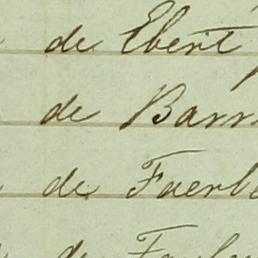 de Ebert
de Barr
de Faerbe
de